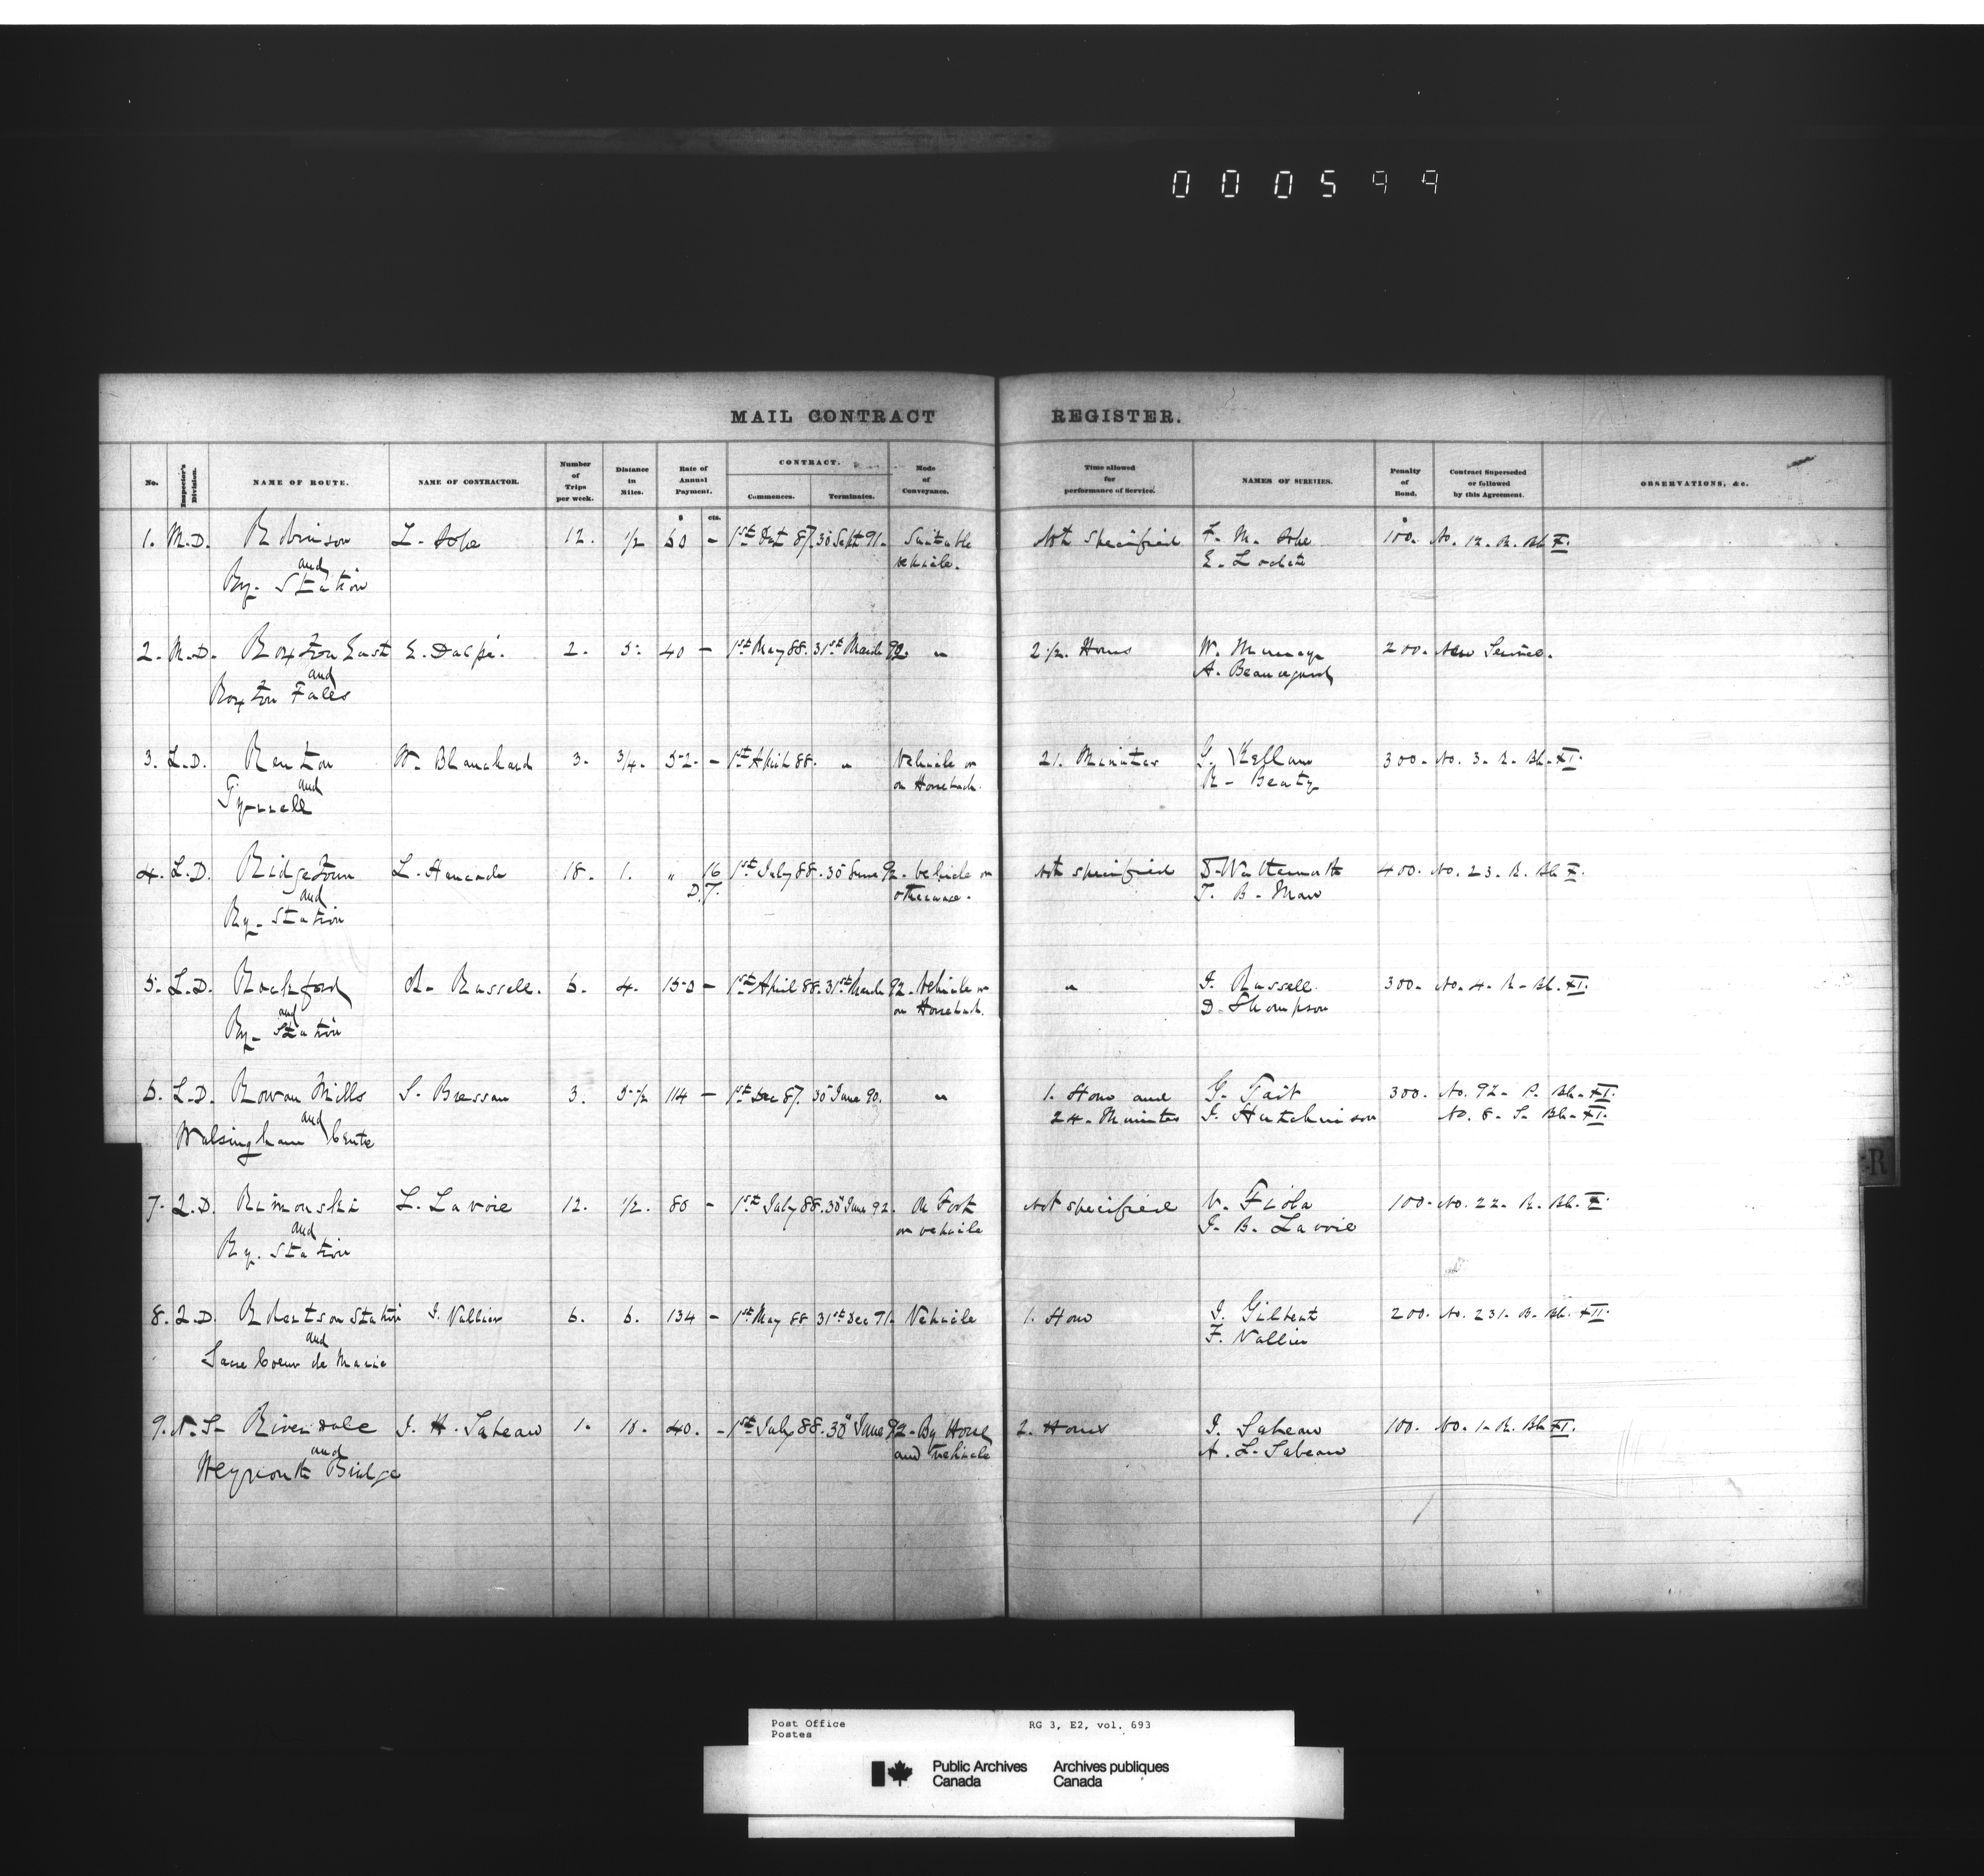 000599
MAIL CONTRACT REGISTER.
No. Inspector's Division. NAME OF ROUTE. NAME OF CONTRACTOR. Number of Trips per week. Distance in Miles. Rate of Annual Payment. CONTRACT. Commences. Terminates. Mode of Conveyance. Time allowed for performance of Service. NAMES OF SURETIES. Penalty of Bond. Contract Superseded or followed by this Agreement. OBSERVATIONS, &c.
$ cts.
1. M.D. Robinson L. 12. 1/2 60 - 1st Oct 87. 30 Sept 91. Suitable Not specified F. M. 100. No. 12. R. Bk X.
and vehicle. E.
Ry. Station
2. M.D. Roxton East E. 2. 5. 40 - 1st May 88. 31st March 92. " 2 1/2. Hours W. 200. New Service.
and A. Beauregard
Roxton Falls
3. L.D. Renton W. Blanchard 3. 3/4. 52. - 1st April 88. " Vehicle or 21. Minutes G. Kellam 300. No. 3. R. Bk. XI.
and on Horseback. R. Beaty
Tyrrell
4. L.D. Ridgetown L. 18. 1. " 16 1st July 88. 30 June 92. Vehicle or Not specified 400. No. 23. R. Bk X.
and D.T. otherwise. T. B. Maw
Ry. Station
5. L.D. Rockford R. Russell. 6. 4. 150 - 1st April 88. 31st March 92. Vehicle or " J. Russell 300. No. 4. R. Bk. XI.
and on Horseback. D. Thompson
Ry. Station
6. L.D. Rowan Mills S. 3. 5 1/2 114 - 1st Dec 87. 30 June 90. " 1. Hour and G. Tait 300. No. 92. P. Bk. XI.
and 24. Minutes J. Hutchinson No. 8. S. Bk. XI.
Walsingham Centre
7. Q.D. Rimouski L. Lavoie 12. 1/2. 80 - 1st July 88. 30 June 92. On Foot Not specified V. Fiola 100. No. 22. R. Bk. X.
and or vehicle J. B. Lavoie
Ry. Station
8. Q.D. Robertson Station J. Vallier 6. 6. 134 - 1st May 88 31st Dec 91. Vehicle 1. Hour J. Gilbert 200. No. 231. B. Bk. XII.
and F. Vallier
Sacre Coeur de Marie
9. N.S. Riverdale J. H. Sabean 1. 10. 40. - 1st July 88. 30 June 92. By Horse 2. Hours J. Sabean 100. No. 1. R. Bk XI.
and and vehicle A. L. Sabean
Weymouth Bridge
-R
Post Office RG 3, E2, vol. 693
Postes
Public Archives Archives publiques
Canada Canada